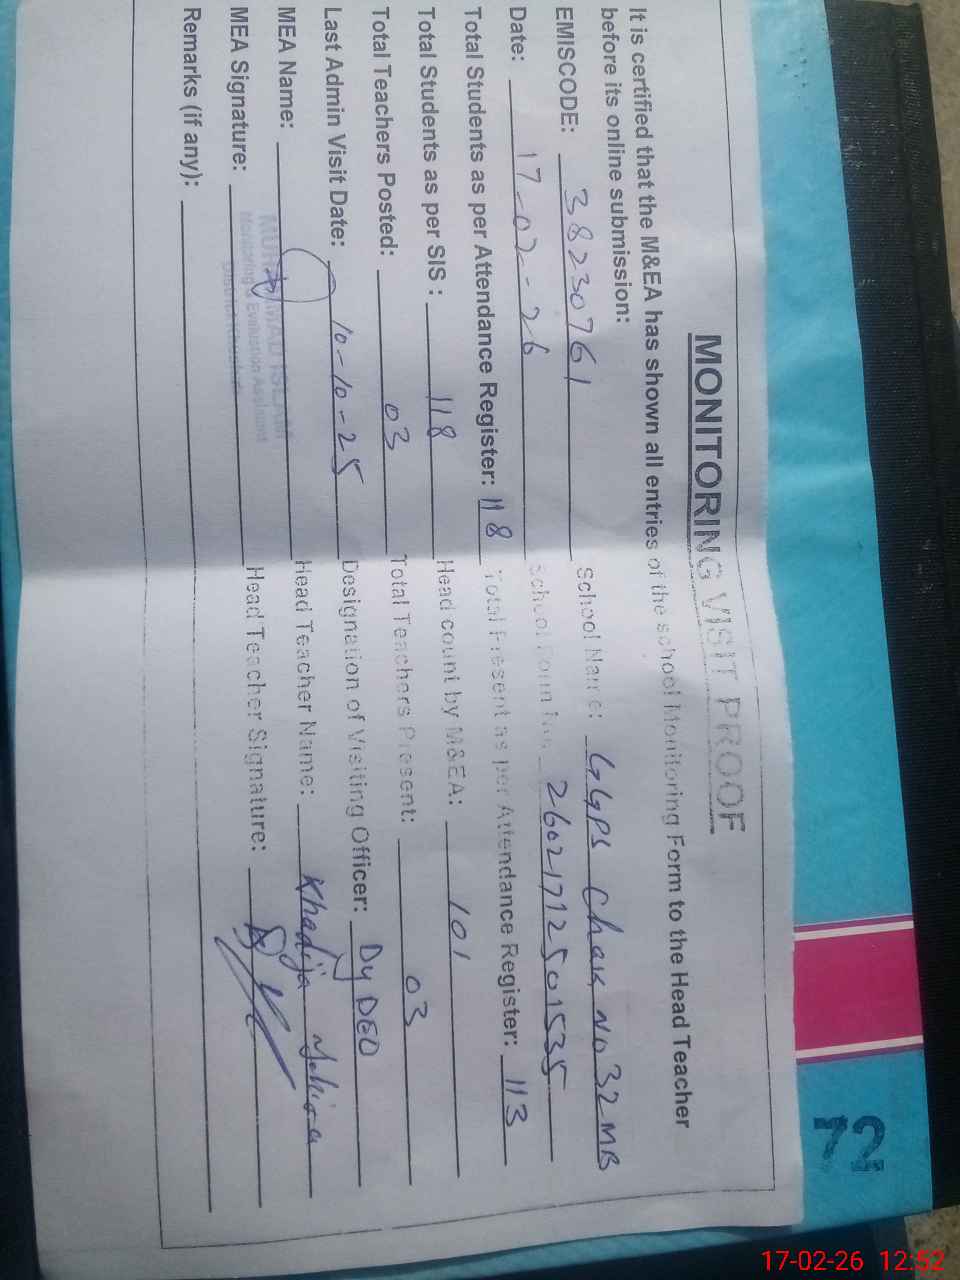 MONITORING VISIT PROOF
It is certified that the M&EA has shown all entries of the school Monitoring Form to the Head Teacher
before its online submission:
EMISCODE: 38230761 School Name: GGPS Chak No 32 MB
Date: 17-02-26 School 26021712501535
Total Students as per Attendance Register: 118 Total Present as per Attendance Register: 113
Total Students as per SIS : 118 Head count by M&EA: 101
Total Teachers Posted: 03 Total Teachers Present: 03
Last Admin Visit Date: 10-10-25 Designation of Visiting Officer: Dy DEO
MEA Name: Head Teacher Name: Khadija
MUHAMMAD ISLAM
Monitoring & Evaluation Assistant
MEA Signature: Head Teacher Signature:
Remarks (if any):
72
17-02-26 12:52